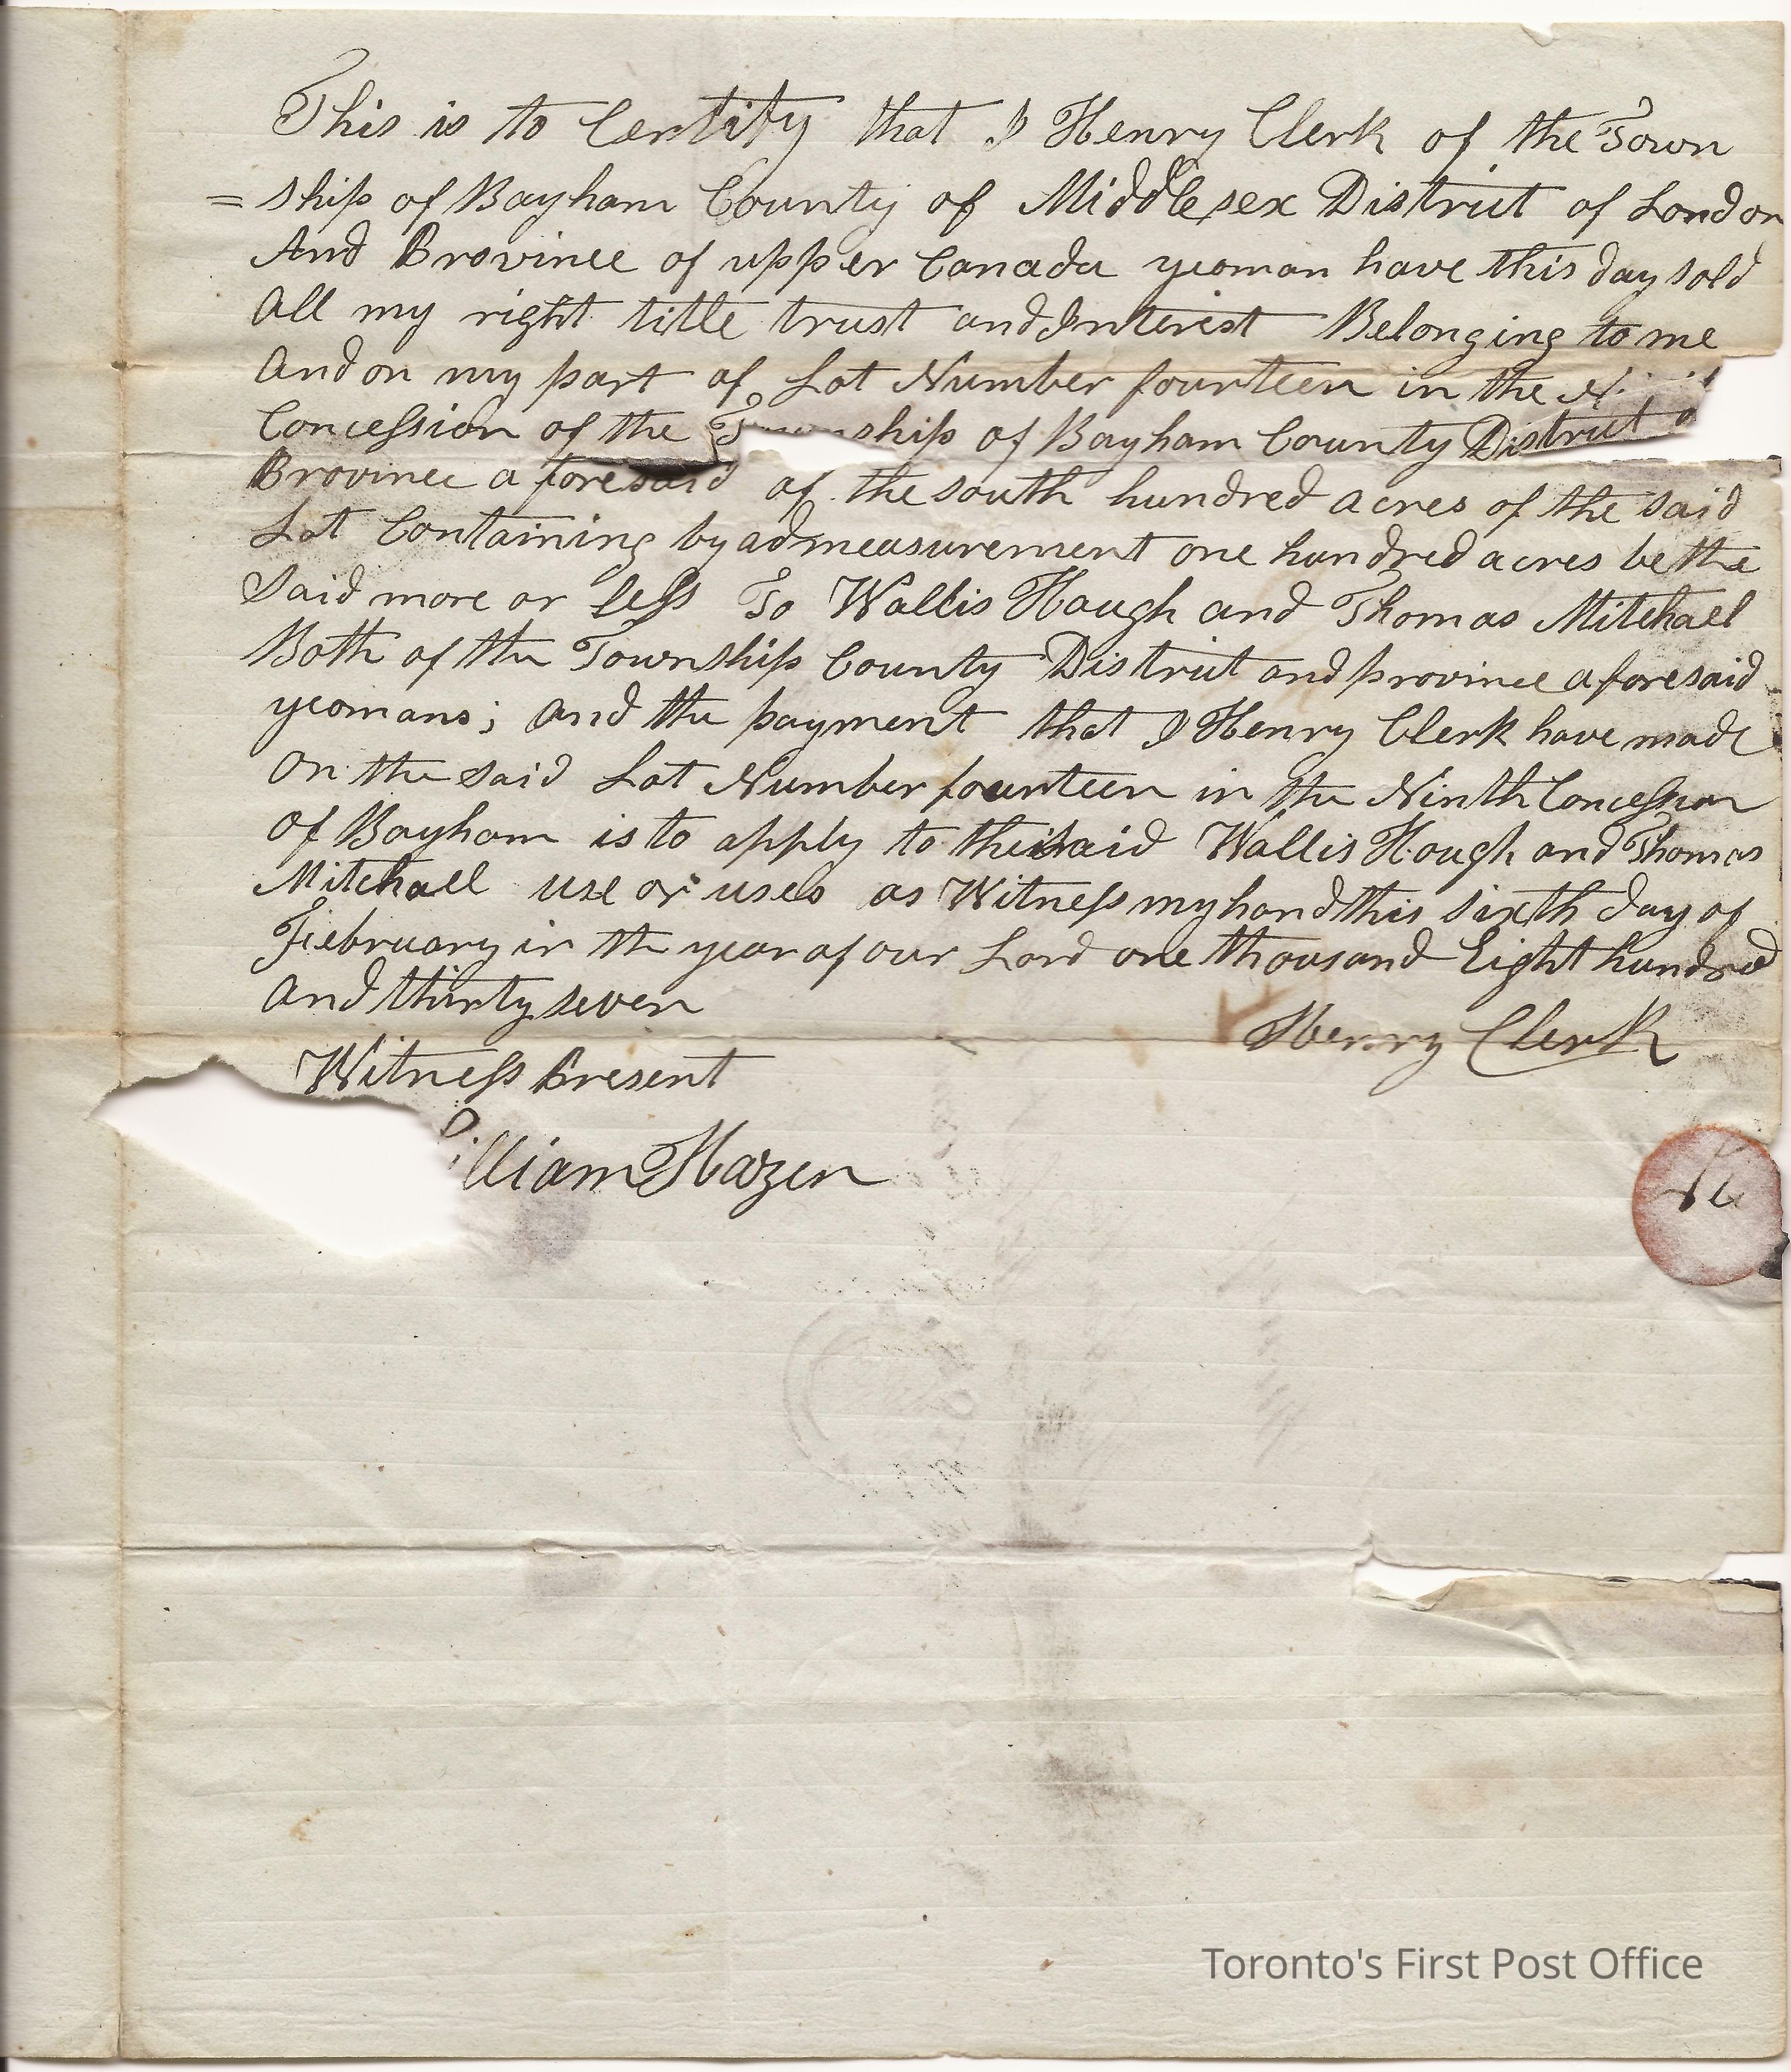 This is to Certify that I Henry Clerk of the Town
= ship of Bayham County of Middlesex District of London
And Province of upper Canada yeoman have this day sold
All my right title trust and Interest Belonging to me
And on my part of Lot Number fourteen in the
Concession of the Township of Bayham County District
Province aforesaid of the south hundred acres of the said
Lot Containing by admeasurement one hundred acres be the
Said more or less To Wallis Hough and Thomas Mitchael
Both of the Township County District and province aforesaid
yeomans; And the payment that I Henry Clerk have made
On the said Lot Number fourteen in the Ninth Concession
Of Bayham is to apply to the said Wallis Hough and Thomas
Mitchall use or uses as Witness my hand this sixth day of
February in the year of our Lord one thousand Eight hundred
And thirty seven
Henry Clerk
Witness Present
illiam Hazen
Toronto's First Post Office